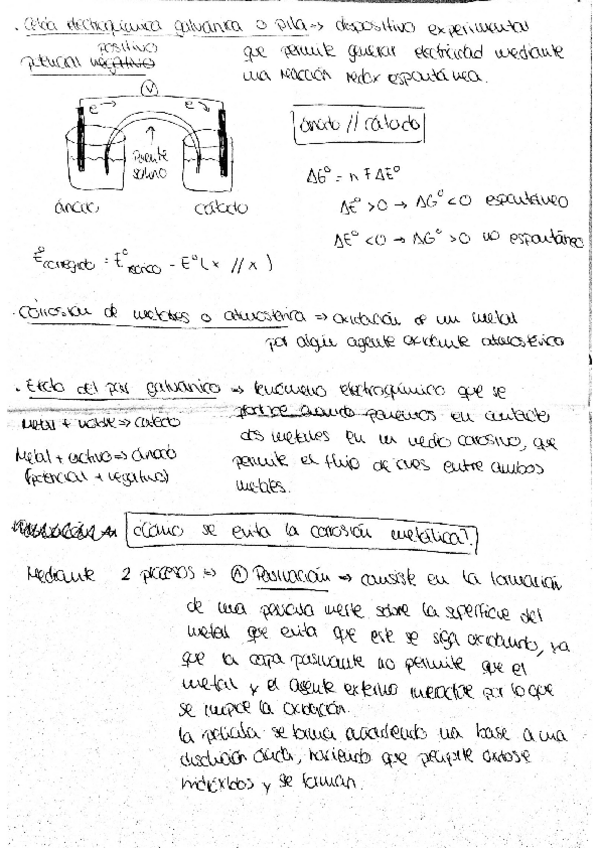 · Celda electroquímica galvánica o pila => dispositivo experimental
positivo
potencial negativo
que permite generar electricidad mediante
una reacción redox espontánea.
V
e⁻ →
e⁻
Puente
salino
ánodo
cátodo
ánodo // cátodo
ΔG° = n F ΔE°
ΔE° > 0 → ΔG° < 0 espontáneo
ΔE° < 0 → ΔG° > 0 no espontáneo
E°corregido = E°teórico - E° ( x // x )
· Corrosión de metales o atmosférica => oxidación de un metal
por algún agente oxidante atmosférico
· Efecto del par galvánico => fenómeno electroquímico que se
produce cuando ponemos en contacto
dos metales en un medio corrosivo, que
permite el flujo de e⁻ entre ambos
metales.
Metal + noble => cátodo
Metal + activo => ánodo
(potencial + negativo)
¿Cómo se evita la corrosión metálica?
Mediante 2 procesos => A Pasivación => consiste en la formación
de una película inerte sobre la superficie del
metal que evita que este se siga oxidando, ya
que la capa pasivante no permite que el
metal y el agente externo interactúe por lo que
se impide la oxidación.
La película se forma añadiendo una base a una
disolución ácida, haciendo que precipite
hidróxidos y se forman.